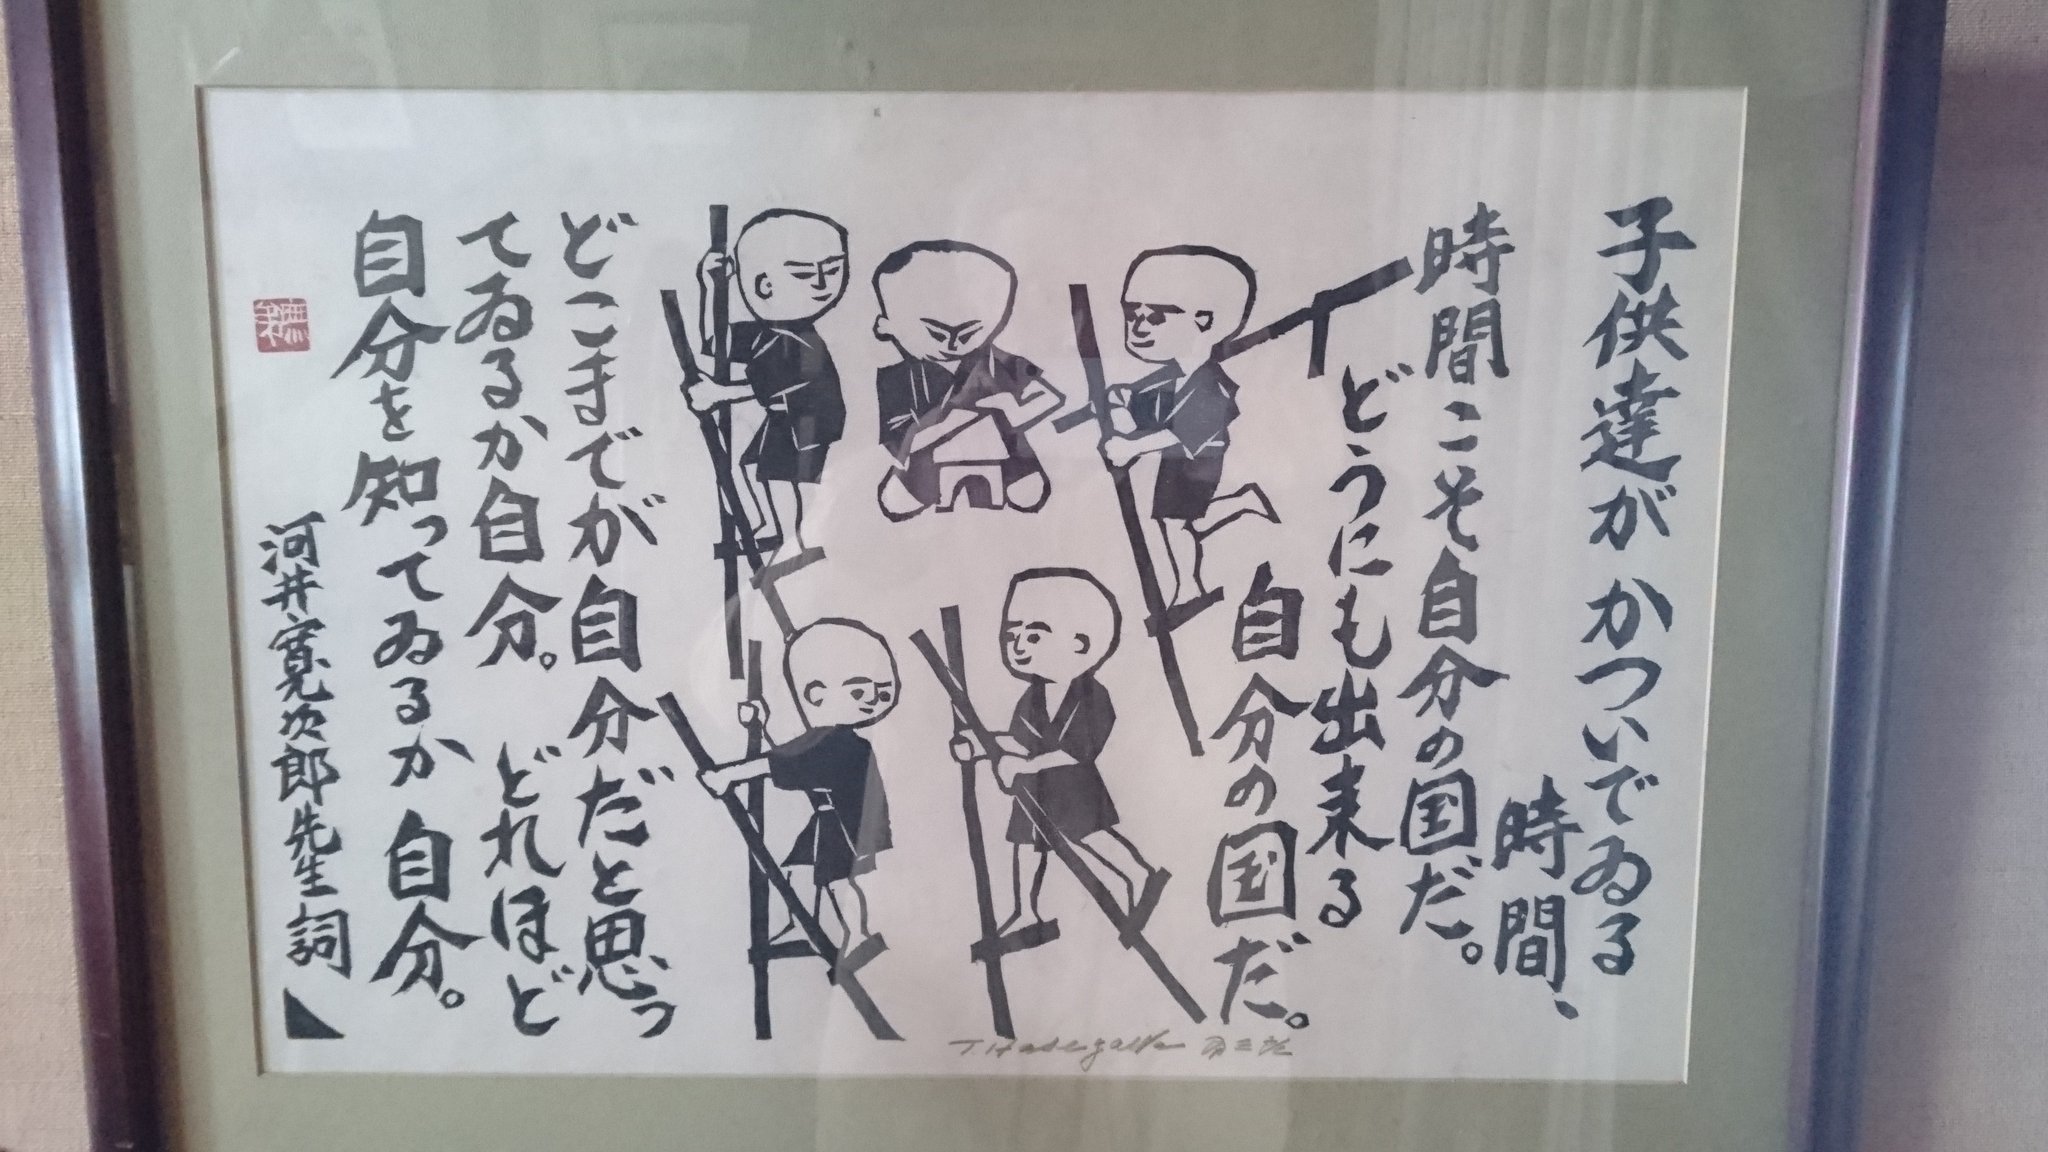 子供達が かついでゐる
時間、
時間こそ自分の国だ。
どうにも出来る
自分の国だ。
どこまでが自分だと思っ
てゐるか自分。どれほど
自分を知ってゐるか 自分。
河井寛次郎先生 詞
T. Hasegawa